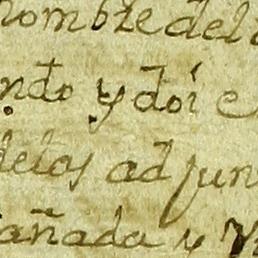 nombre del
ndo y doi e
detos adjun
añada y